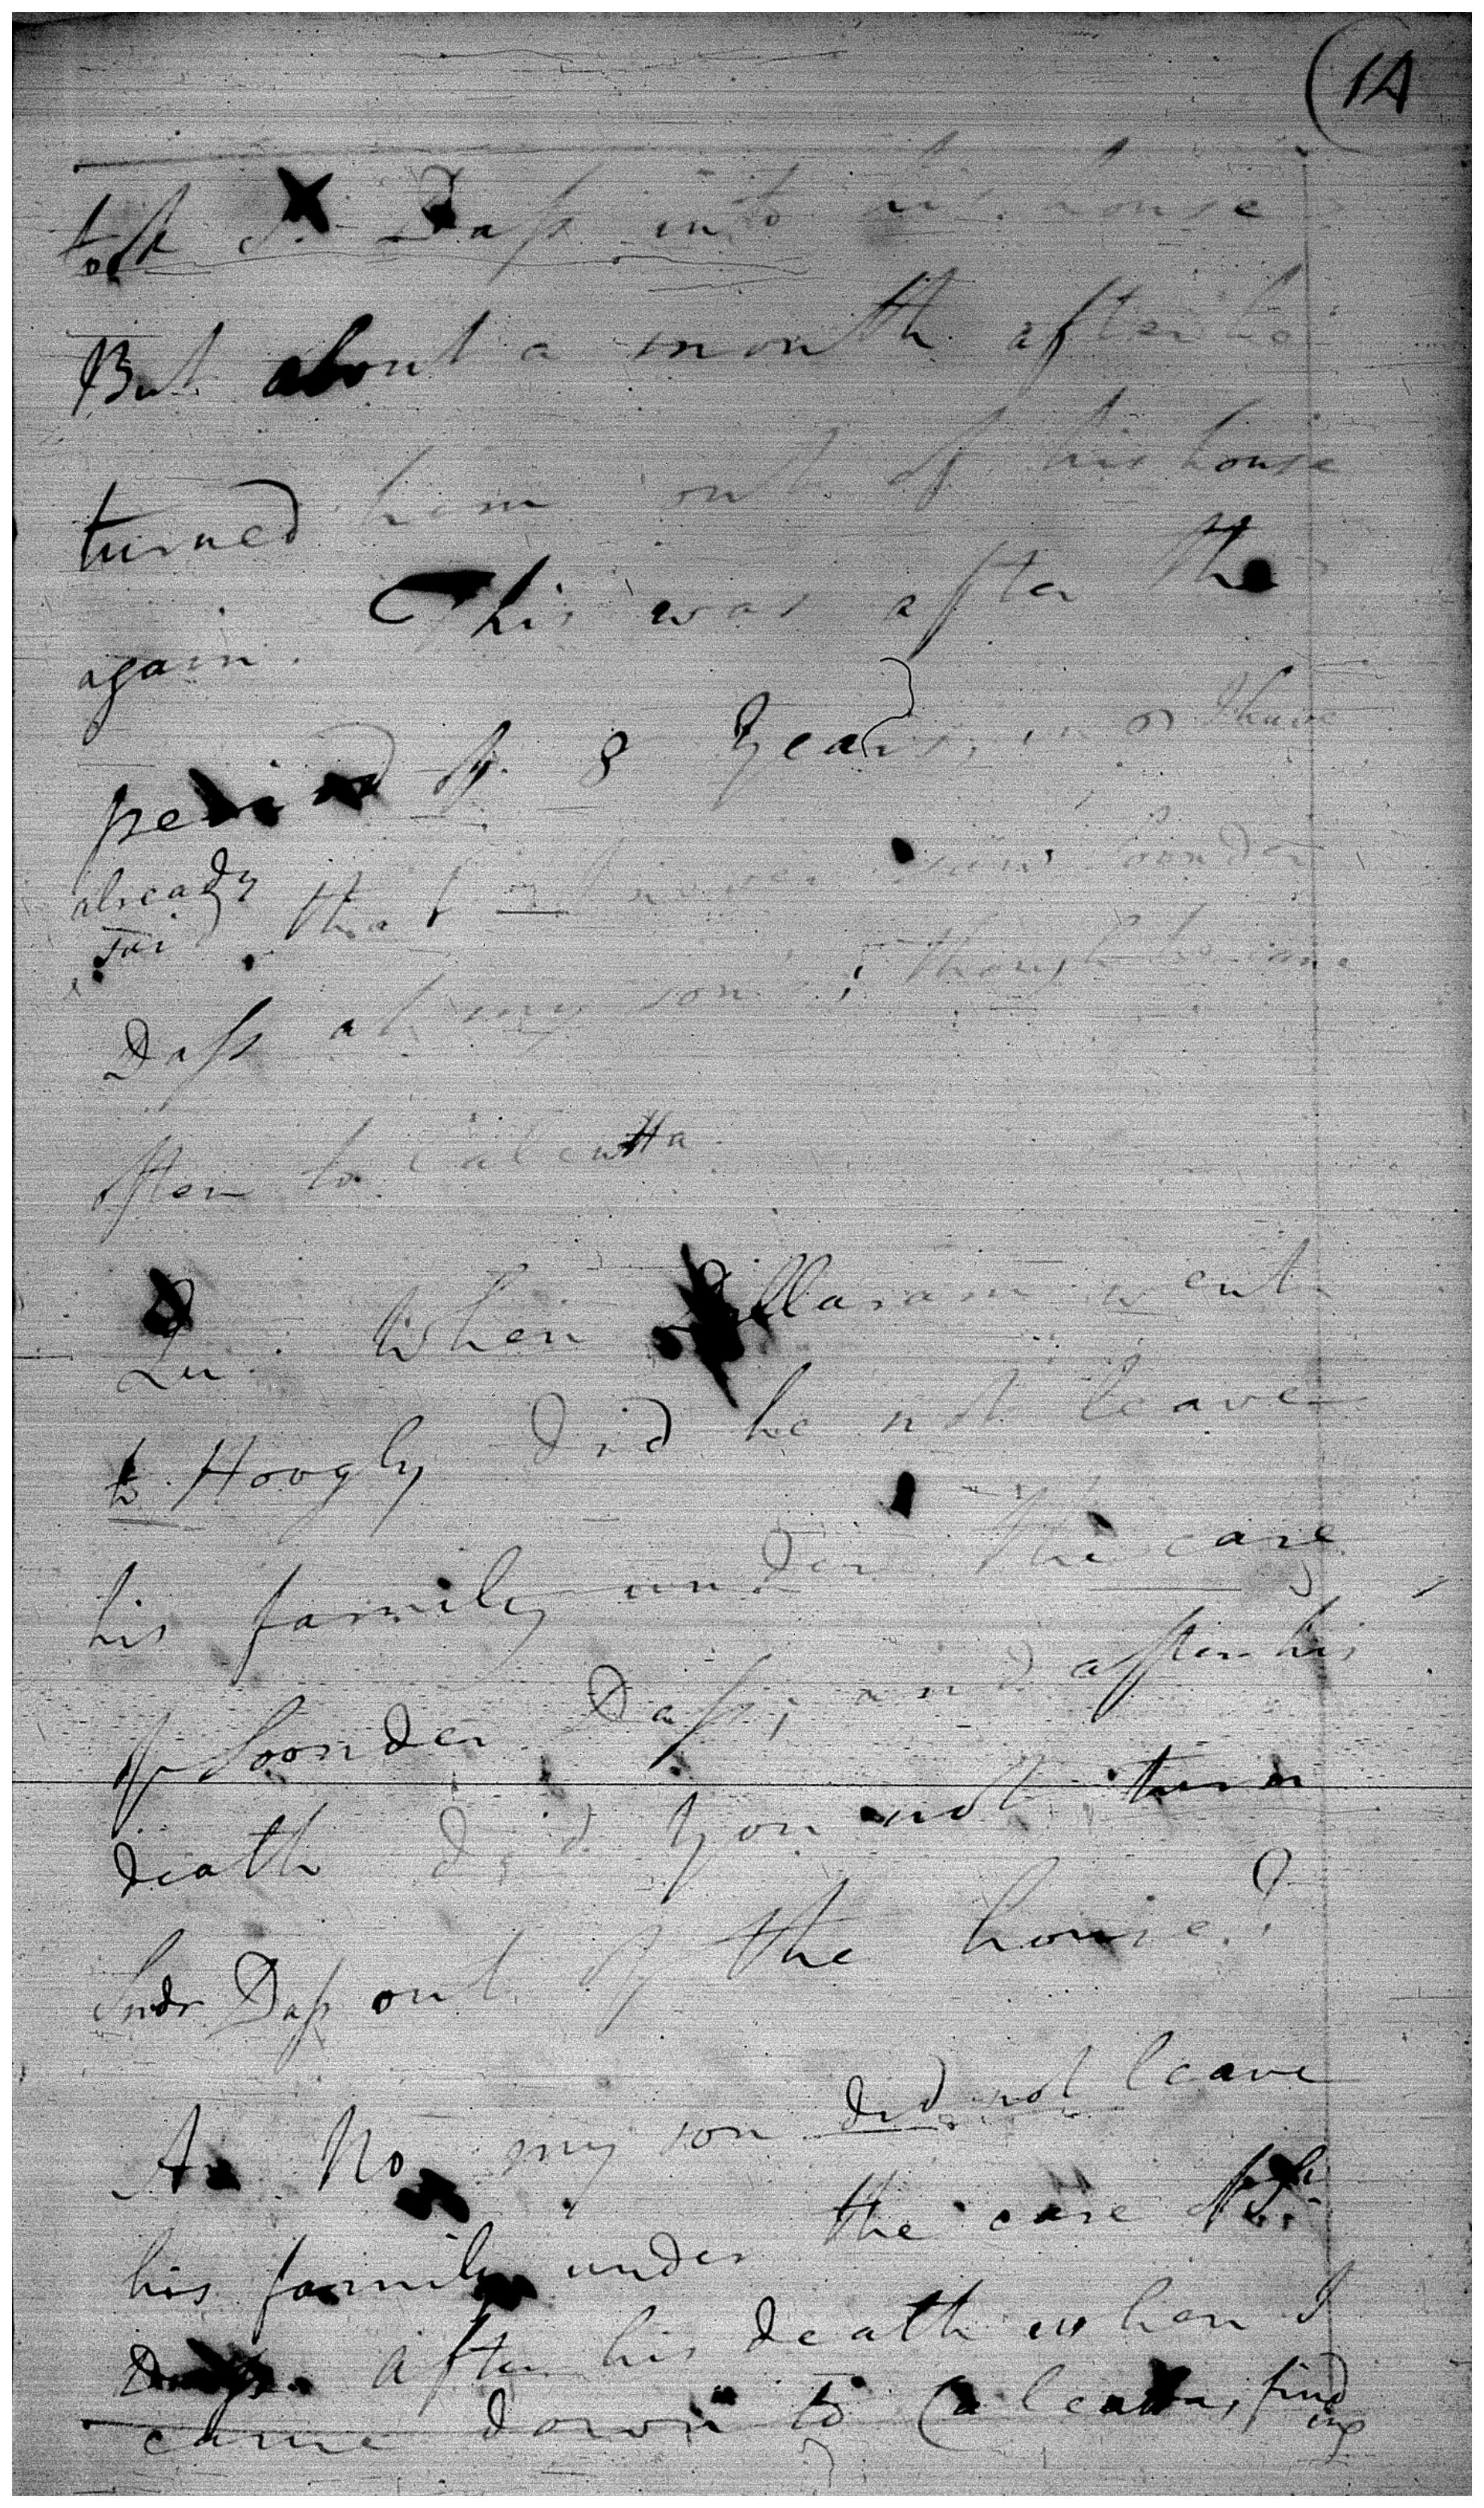 14
took S. Dass into his house
But about a month after he
turned him out of his house
again. This was after the
period of 8 Years, I have
already
said that I never saw Soonder
Dass at my son's, though he came
often to Calcutta
Qu. When Dillaram went
to Hoogly did he not leave
his family under the care
of Soonder Dass, and after his
death did you not turn
Sndr Dass out of the house?
An No my son did not leave
his family under the care of
Dass. After his death when I
came down to Calcutta, find
ing